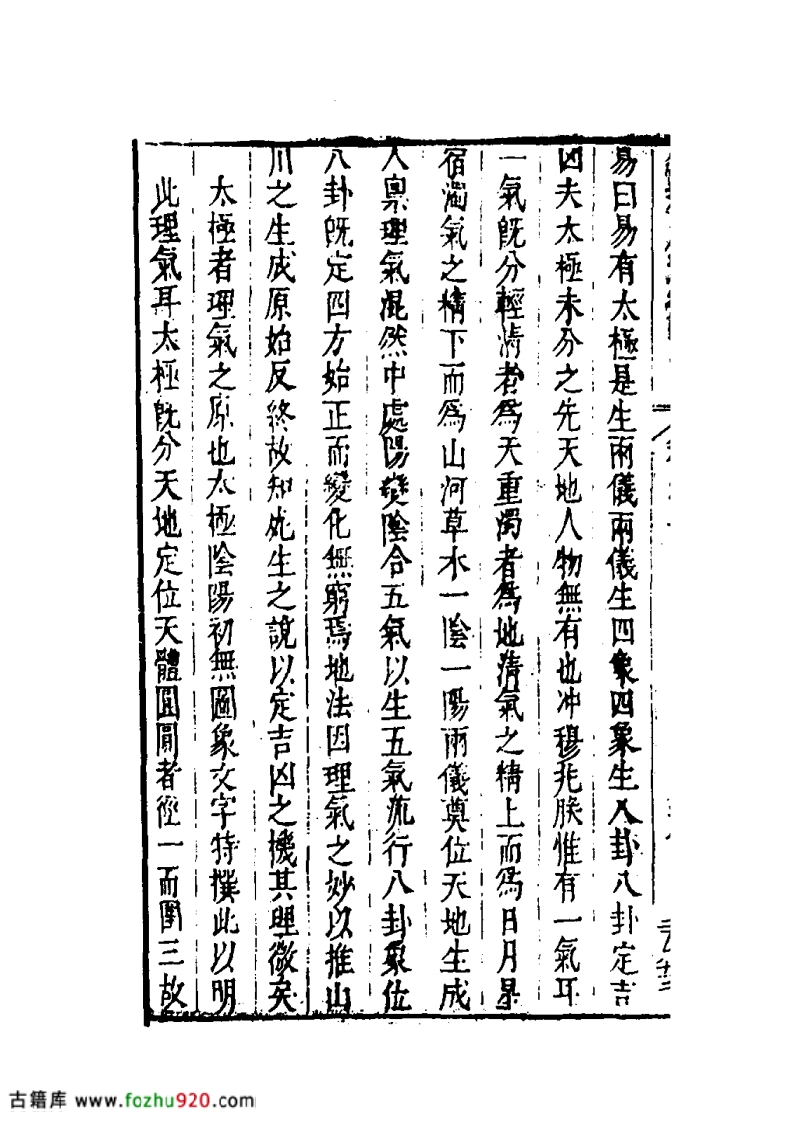 易曰易有太極是生兩儀兩儀生四象四象生八卦八卦定吉
凶夫太極未分之先天地人物無有也冲穆兆朕惟有一氣耳
一氣既分輕清者爲天重濁者爲地清氣之精上而爲日月星
宿濁氣之精下而爲山河草木一陰一陽兩儀奠位天地生成
人稟理氣混然中處陽變陰合五氣以生五氣流行八卦象位
八卦既定四方始正而變化無窮焉地法因理氣之妙以推山
川之生成原始反終故知死生之說以定吉凶之機其理微矣
太極者理氣之原也太極陰陽初無圖象文字特撰此以明
此理氣耳太極既分天地定位天體圓圓者徑一而圍三故
古籍库 www.fozhu920.com